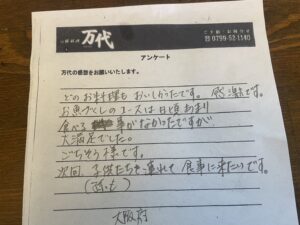 万代
ご予約・お問合せ
☎0799-52-1140
アンケート
万代の感想をお願いいたします。
どのお料理も おいしかったです。感激です。
お魚づくしのコースは日頃あまり
食べる 事がなかったですが
大満足でした。
ごちそう様です。
次回、子供たちや 連れて 食事に来たいです。
大阪府